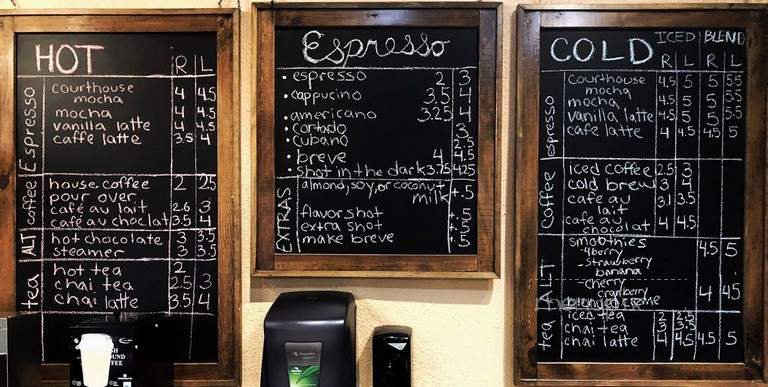 HOT R L
Espresso
courthouse
mocha 4 4.5
mocha 4 4.5
vanilla latte 4 4.5
caffe latte 3.5 4
coffee
house coffee 2 2.5
pour over
café au lait 2.6 3
café au chocolat 3.5 4
ALT
hot chocolate 3 3.5
steamer 3 3.5
tea
hot tea 2
chai tea 2.5 3
chai latte 3.5 4
Espresso
• espresso 2 3
• cappucino 3.5 4
• americano 3.25 4
• cortado 3
• cubano 2.5
• breve 4 4.5
• shot in the dark 3.75 4.25
EXTRAS
almond, soy, or coconut
milk +.5
flavor shot +.5
extra shot +.5
make breve +.5
COLD ICED BLEND
R L R L
espresso
courthouse
mocha 4.5 5 5 5.5
mocha 4.5 5 5 5.5
vanilla latte 4.5 5 5 5.5
cafe latte 4 4.5 4.5 5
Coffee
iced coffee 2.5 3
cold brew 3 4
cafe au
lait 3.1 3.5
cafe au
chocolat 4 4.5
ALT
smoothies 4.5 5
-4berry
-strawberry
banana
-cherry
cranberry 4 4.5
blended creme
tea
iced tea 2 2.5
chai tea 3 3.5
chai latte 4 4.5 4.5 5
COFFEE